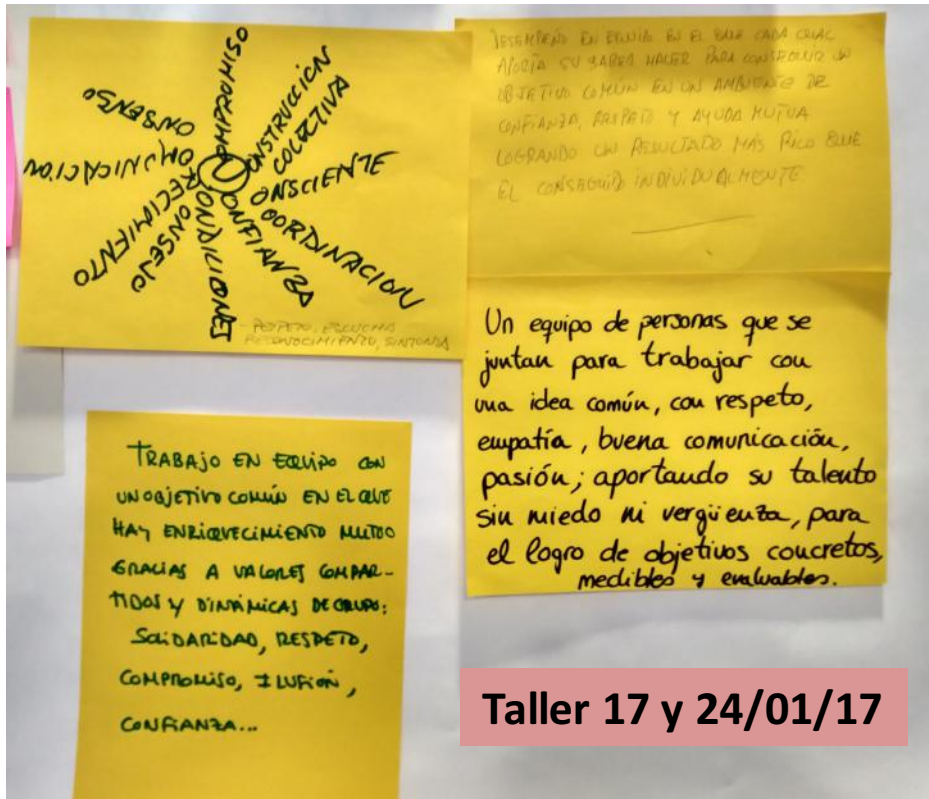 COMPROMISO
CONSTRUCCION
COLECTIVA
CONSCIENTE
COORDINACION
CONFIANZA
CONDICIONES
CONSEJO
CRECIMIENTO
COMUNICACION
CONSENSO
- RESPETO, ESCUCHA
RECONOCIMIENTO, SINTONIA
DESEMPEÑO EN EQUIPO EN EL QUE CADA CUAL
APORTA SU SABER HACER PARA CONSEGUIR UN
OBJETIVO COMÚN EN UN AMBIENTE DE
CONFIANZA, RESPETO Y AYUDA MUTUA
LOGRANDO UN RESULTADO MÁS RICO QUE
EL CONSEGUIDO INDIVIDUALMENTE
Un equipo de personas que se
juntan para trabajar con
una idea común, con respeto,
empatía, buena comunicación,
pasión; aportando su talento
sin miedo ni vergüenza, para
el logro de objetivos concretos,
medibles y evaluables.
TRABAJO EN EQUIPO CON
UN OBJETIVO COMÚN EN EL QUE
HAY ENRIQUECIMIENTO MUTUO
GRACIAS A VALORES COMPAR-
TIDOS Y DINÁMICAS DE GRUPO:
SOLIDARIDAD, RESPETO,
COMPROMISO, ILUSIÓN,
CONFIANZA...
Taller 17 y 24/01/17